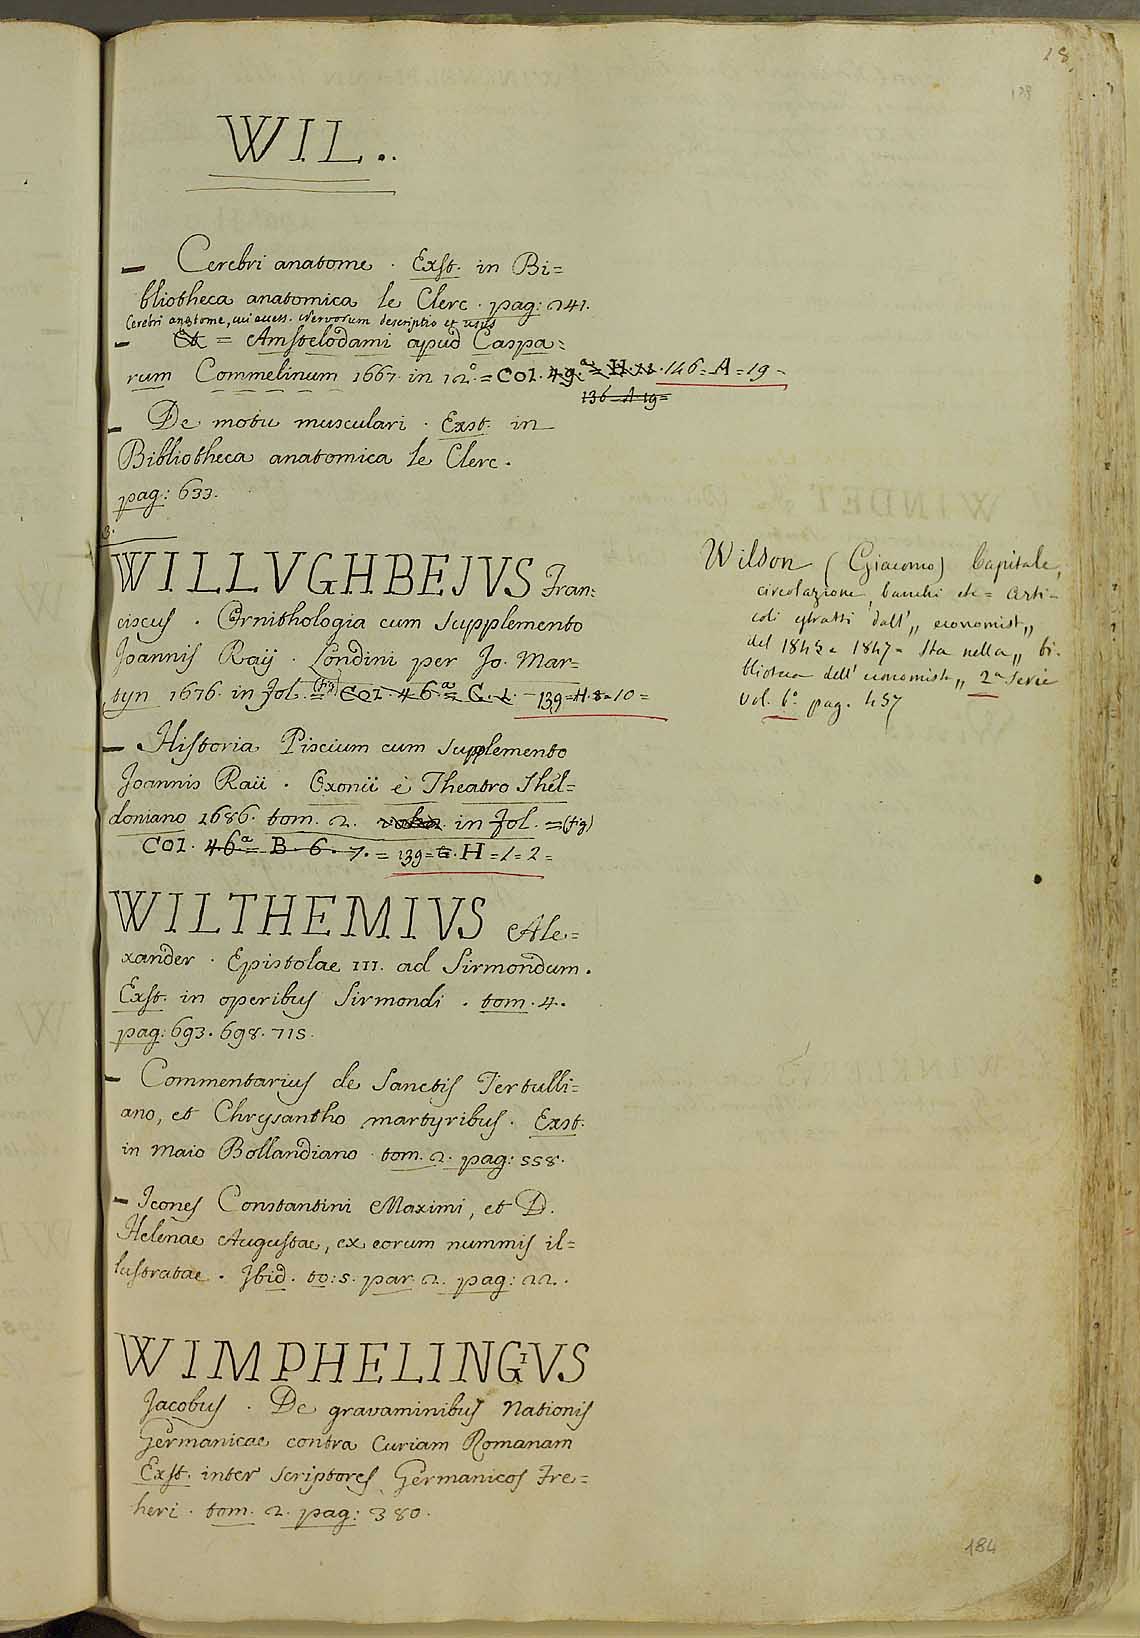 18
WIL..
– Cerebri anatome . Exst. in Bi=
bliotheca anatomica le Clerc . pag: 241.
Cerebri anatome, cui access. Nervorum descriptio et usus
– Et = Amstelodami apud Caspa=
rum Commelinum 1667. in 12.° = Col. 49.ª = H. 11. 146 = A = 19 –
136 = A 19 =
– De motu musculari . Exst. in
Bibliotheca anatomica le Clerc .
pag: 633.
3.
WILLVGHBEJVS Fran=
ciscus . Ornithologia cum Supplemento
Joannis Raij . Londini per Jo. Mar=
tyn 1676. in Fol. = (Fig) Col. 46.ª = C. 1. – 139 = H. 8 = 10 =
– Historia Piscium cum Supplemento
Joannis Raii . Oxonii è Theatro Shel=
doniano 1686. tom. 2. in Fol. = (fig)
Col. 46.ª = B. 6. 7. = 139 = G. H = 1 = 2 =
WILTHEMIVS Ale=
xander . Epistolae III. ad Sirmondum .
Exst. in operibus Sirmondi . tom. 4.
pag: 693. 698. 715.
– Commentarius de Sanctis Tertulli=
ano, et Chrysantho martyribus . Exst.
in Maio Bollandiano tom. 2. pag: 558.
– Icones Constantini Maximi, et D.
Helenae Augustae, ex eorum nummis il=
lustratae . Ibid. to: 5. par. 2. pag: 22.
WIMPHELINGIVS
Jacobus . De gravaminibus Nationis
Germanicae contra Curiam Romanam
Exst. inter Scriptores Germanicos Fre=
heri . tom. 2. pag: 380.
Wilson (Giacomo) Capitale,
circolazione, banchi etc = Arti-
coli estratti dall' „ economist „
del 1845 e 1847 = Sta nella „ bi-
blioteca dell' economista „ 2ª Serie
vol. 6° pag. 457
184